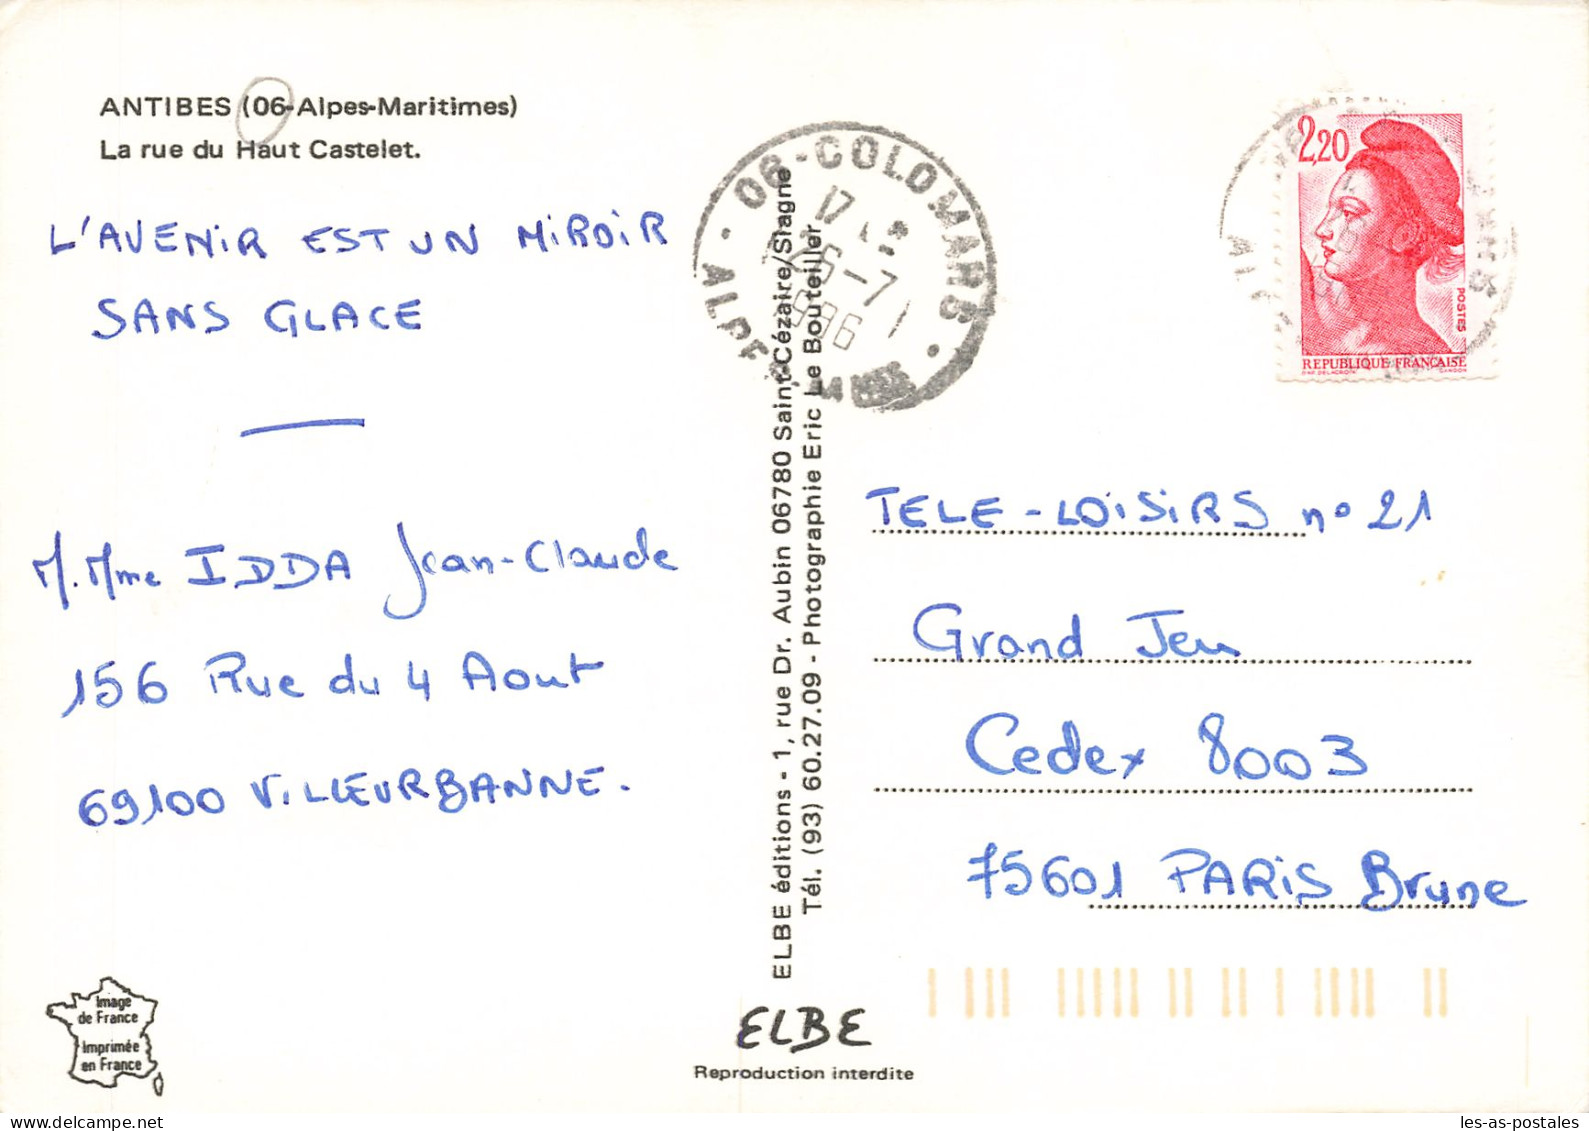 ANTIBES (06-Alpes-Maritimes)
La rue du Haut Castelet.
L'AVENIR EST UN MIROIR
SANS GLACE
M. Mme IDDA Jean-Claude
156 Rue du 4 Aout
69100 VILLEURBANNE.
Image
de France
Imprimée
en France
06-COLOMARS
17
26-7
1986
ALPES
ELBE éditions - 1, rue Dr. Aubin 06780 Saint-Cézaire/Siagne
Tél. (93) 60.27.09 - Photographie Eric Le Bouteiller
ELBE
Reproduction interdite
2,20
POSTES
REPUBLIQUE FRANÇAISE
D'AP. DELACROIX GANDON
TELE-LOISIRS n° 21
Grand Jeu
Cedex 8003
75601 PARIS Brune
les-as-postales